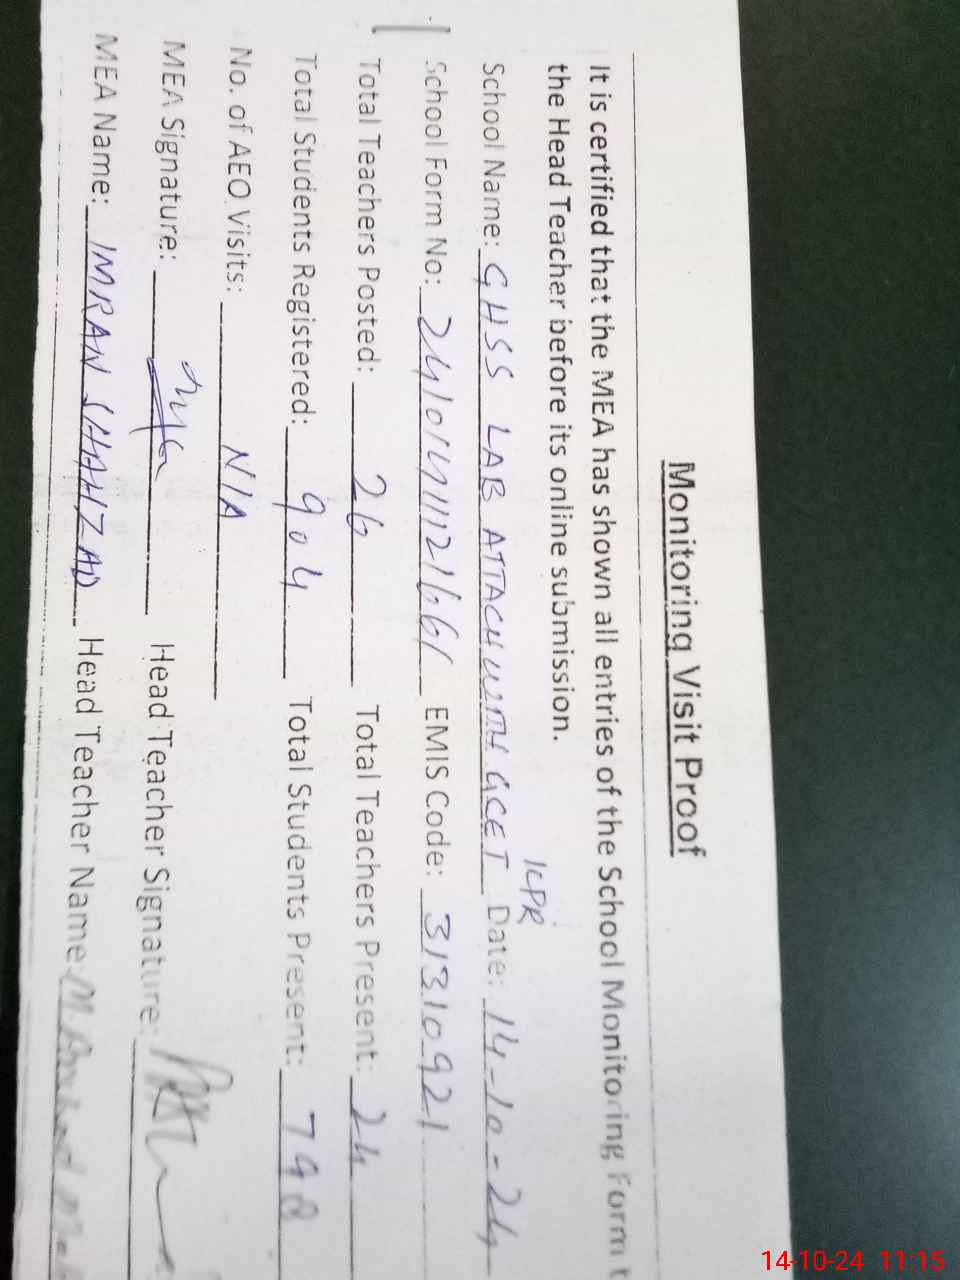 Monitoring Visit Proof
It is certified that the MEA has shown all entries of the School Monitoring Form t
the Head Teacher before its online submission.
KPR
School Name: GHSS LAB ATTACH WITH GCET Date: 14-10-24
School Form No: EMIS Code: 31310921
Total Teachers Posted: 26 Total Teachers Present: 24
Total Students Registered: 904 Total Students Present: 798
No. of AEO Visits: N/A
MEA Signature: Head Teacher Signature:
MEA Name: IMRAN SHAHZAD Head Teacher Name: M.
14-10-24 11:15